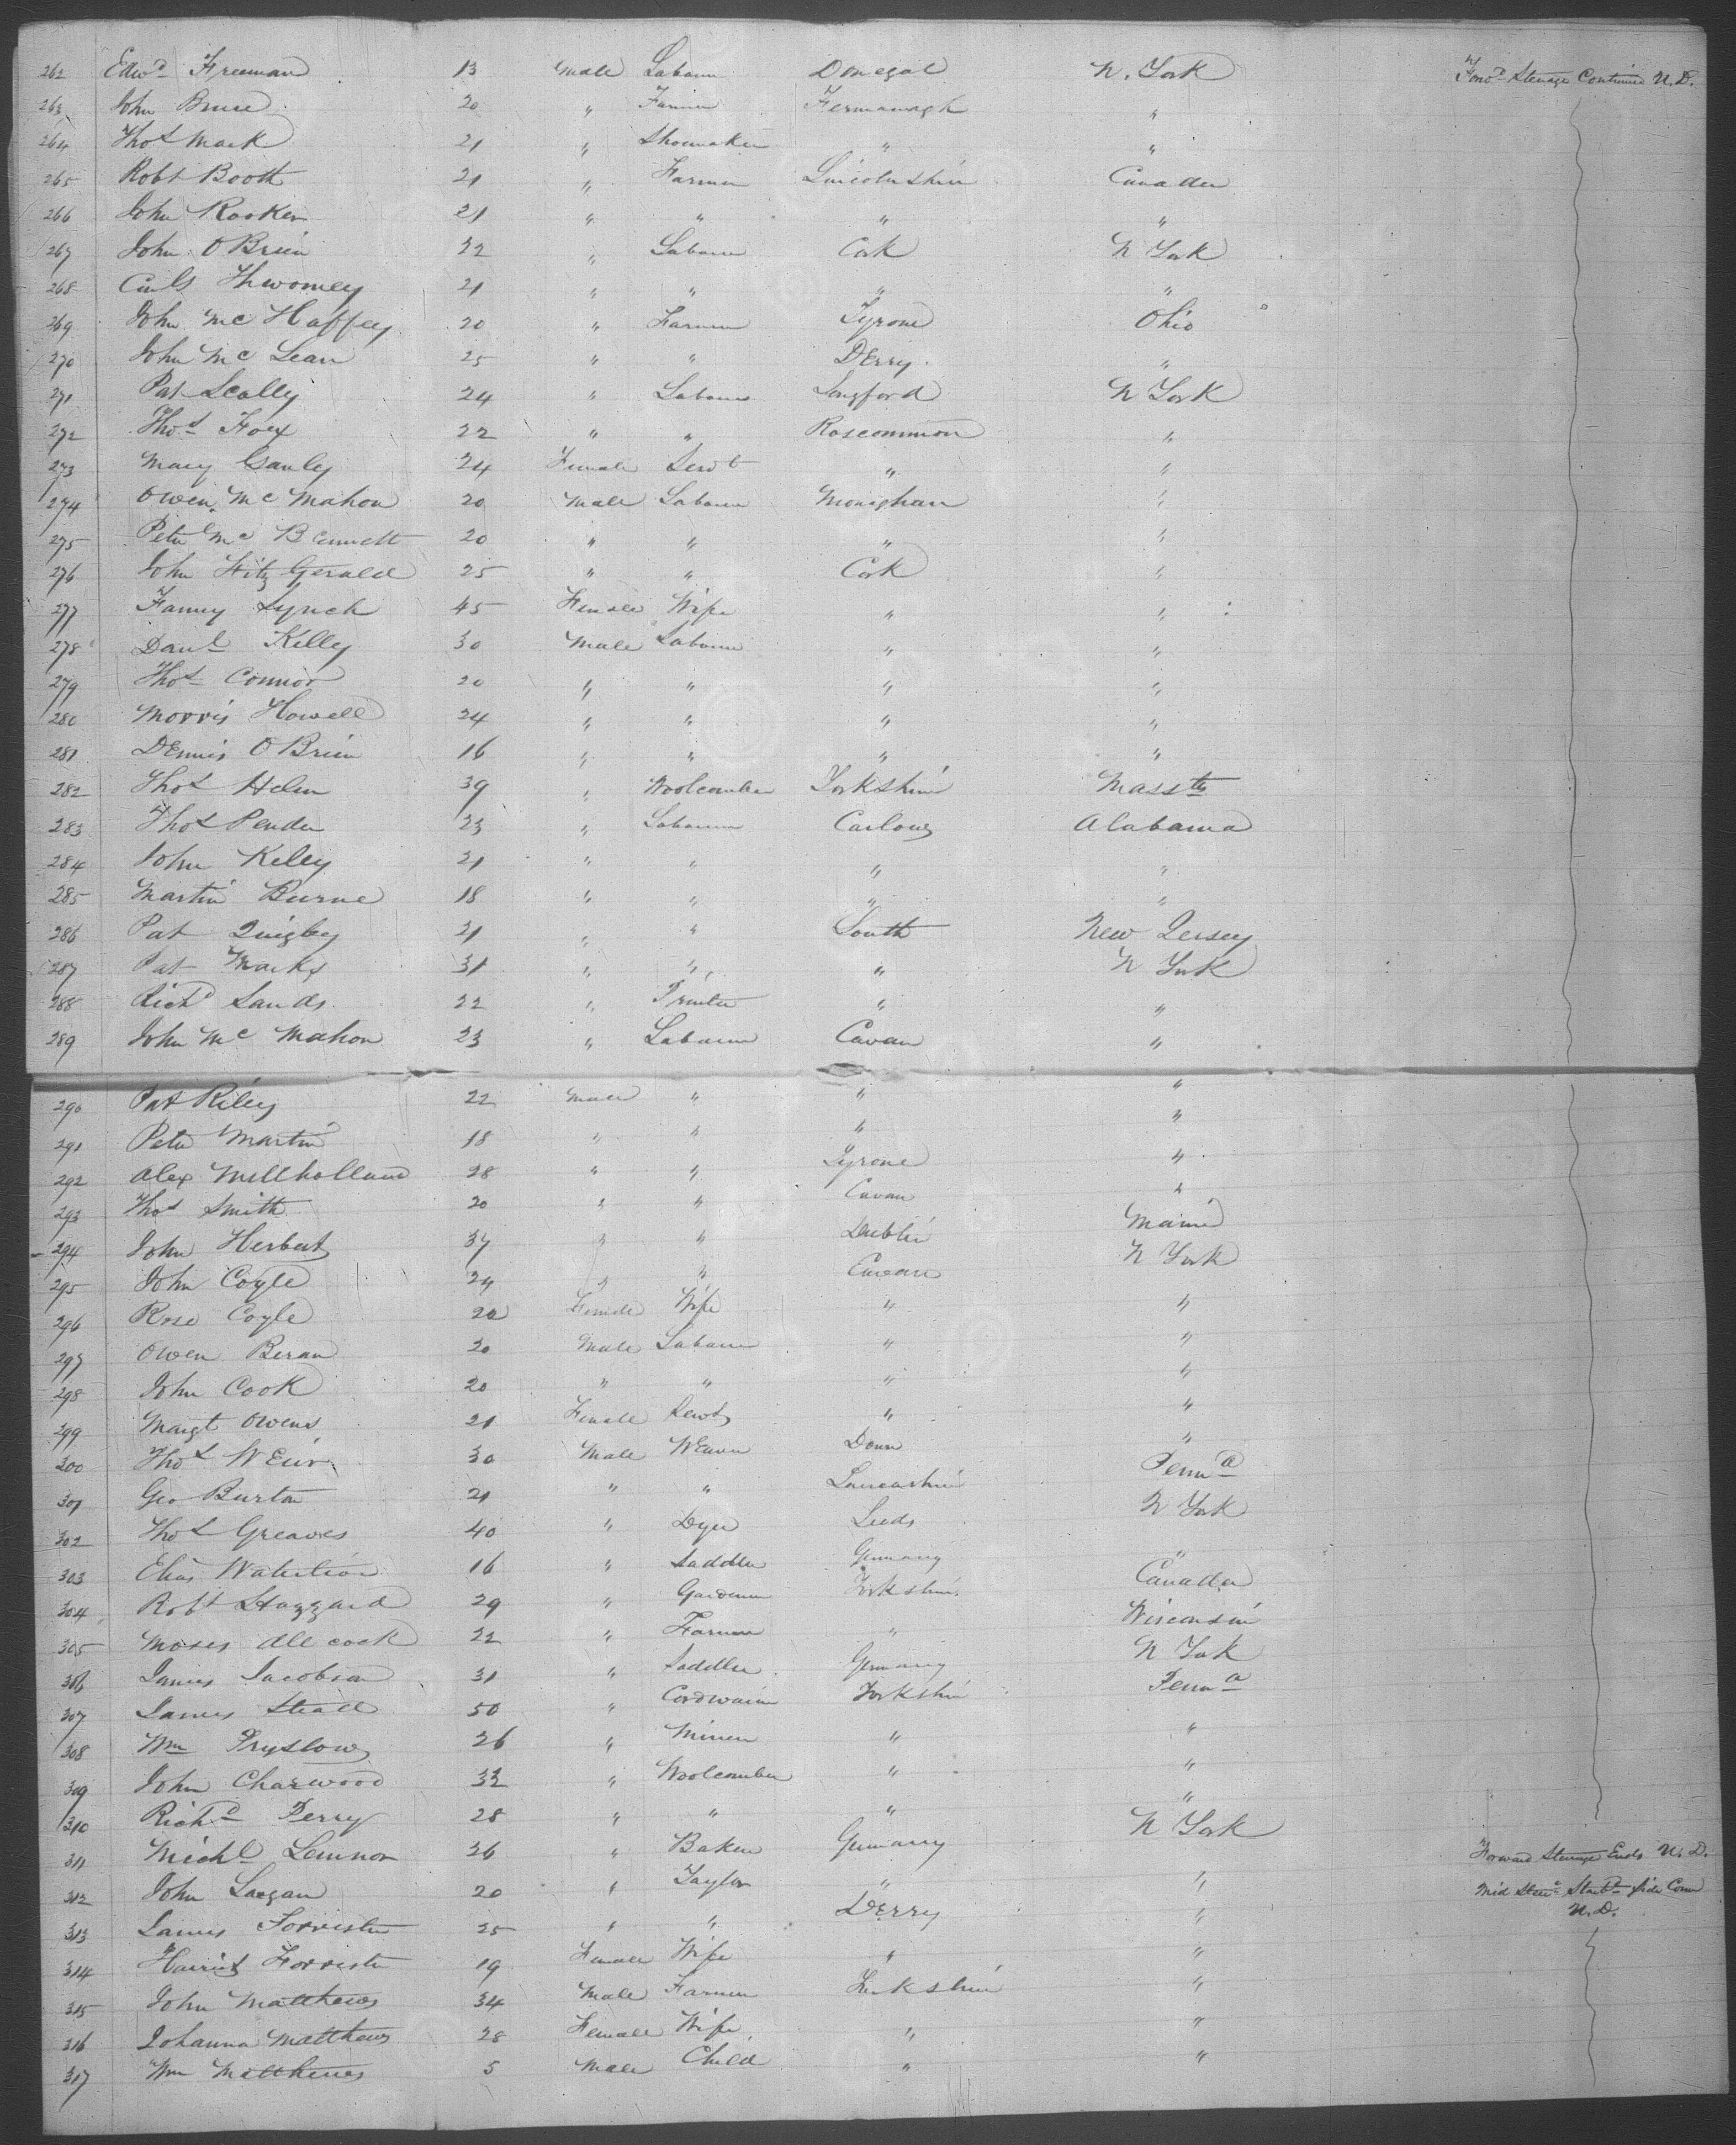 262 Edwd Freeman 13 Male Labourer Donegal N. York Forwd Steerage Continued U.D.
263 John Bruce 20 " Farmer Fermanagh "
264 Thos Mark 21 " Shoemaker " "
265 Robt Booth 21 " Farmer Lincolnshire Canada
266 John Rooker 21 " " " "
267 John O Brien 22 " Labourer Cork N York
268 Twomey 21 " " " "
269 John Mc Haffey 20 " Farmer Tyrone Ohio
270 John Mc Lean 25 " " Derry "
271 Pat Scally 24 " Labourer Longford N York
272 Thos Foex 22 " " Roscommon "
273 Mary Ganly 24 Female Servt " "
274 Owen Mc Mahon 20 Male Labourer Monaghan "
275 Peter Mc Bennett 20 " " " "
276 John Fitz Gerald 25 " " Cork "
277 Fanny Lynch 45 Female Wife " "
278 Danl Kelley 30 Male Labourer " "
279 Thos Connor 20 " " " "
280 Morris Howell 24 " " " "
281 Dennis O Brien 16 " " " "
282 Thos Helm 39 " Woolcomber Yorkshire Massts
283 Thos Pender 23 " Labourer Carlow Alabama
284 John Kelly 21 " " " "
285 Martin Burne 18 " " " "
286 Pat Quigley 21 " " Louth New Jersey
287 Pat Marks 31 " " " N York
288 Richd Sands 22 " Printer " "
289 John Mc Mahon 23 " Labourer Cavan "
290 Pat Riley 22 Male " " "
291 Peter Martin 18 " " " "
292 Alex Millholland 28 " " Tyrone "
293 Thos Smith 20 " " Cavan "
294 John Herbert 37 " " Dublin Maine
295 John Coyle 24 " " Cavan N York
296 Rose Coyle 20 Female Wife " "
297 Owen Beran 20 Male Labourer " "
298 John Cook 20 " " " "
299 Margt Owens 21 Female Servt " "
300 Thos Weir 30 Male Weaver Down "
301 Geo Burton 21 " " Lancashire Penna
302 Thos Greaves 40 " Dyer Leeds N York
303 Elias 16 " Saddler Germany "
304 Robt Hazzard 29 " Gardener Yorkshire Canada
305 Moses Allcock 22 " Farmer " Wisconsin
306 James Jacobson 31 " Saddler Germany N York
307 James Stead 50 " Cordwainer Yorkshire Penna
308 Wm Prystow 26 " Miner " "
309 John Charwood 32 " Woolcomber " "
310 Richd Perry 28 " " " "
311 Michl Lennon 26 " Baker Germany N York Forward Steerage Ends U.D.
312 John Loogan 20 " Taylor " " Mid Steere Starbd Side Com
313 James Forrister 25 " " Derry " U.D.
314 Harriet Forrister 19 Female Wife " "
315 John Matthews 34 Male Farmer Yorkshire "
316 Johanna Matthews 28 Female Wife " "
317 Wm Matthews 5 Male Child " "